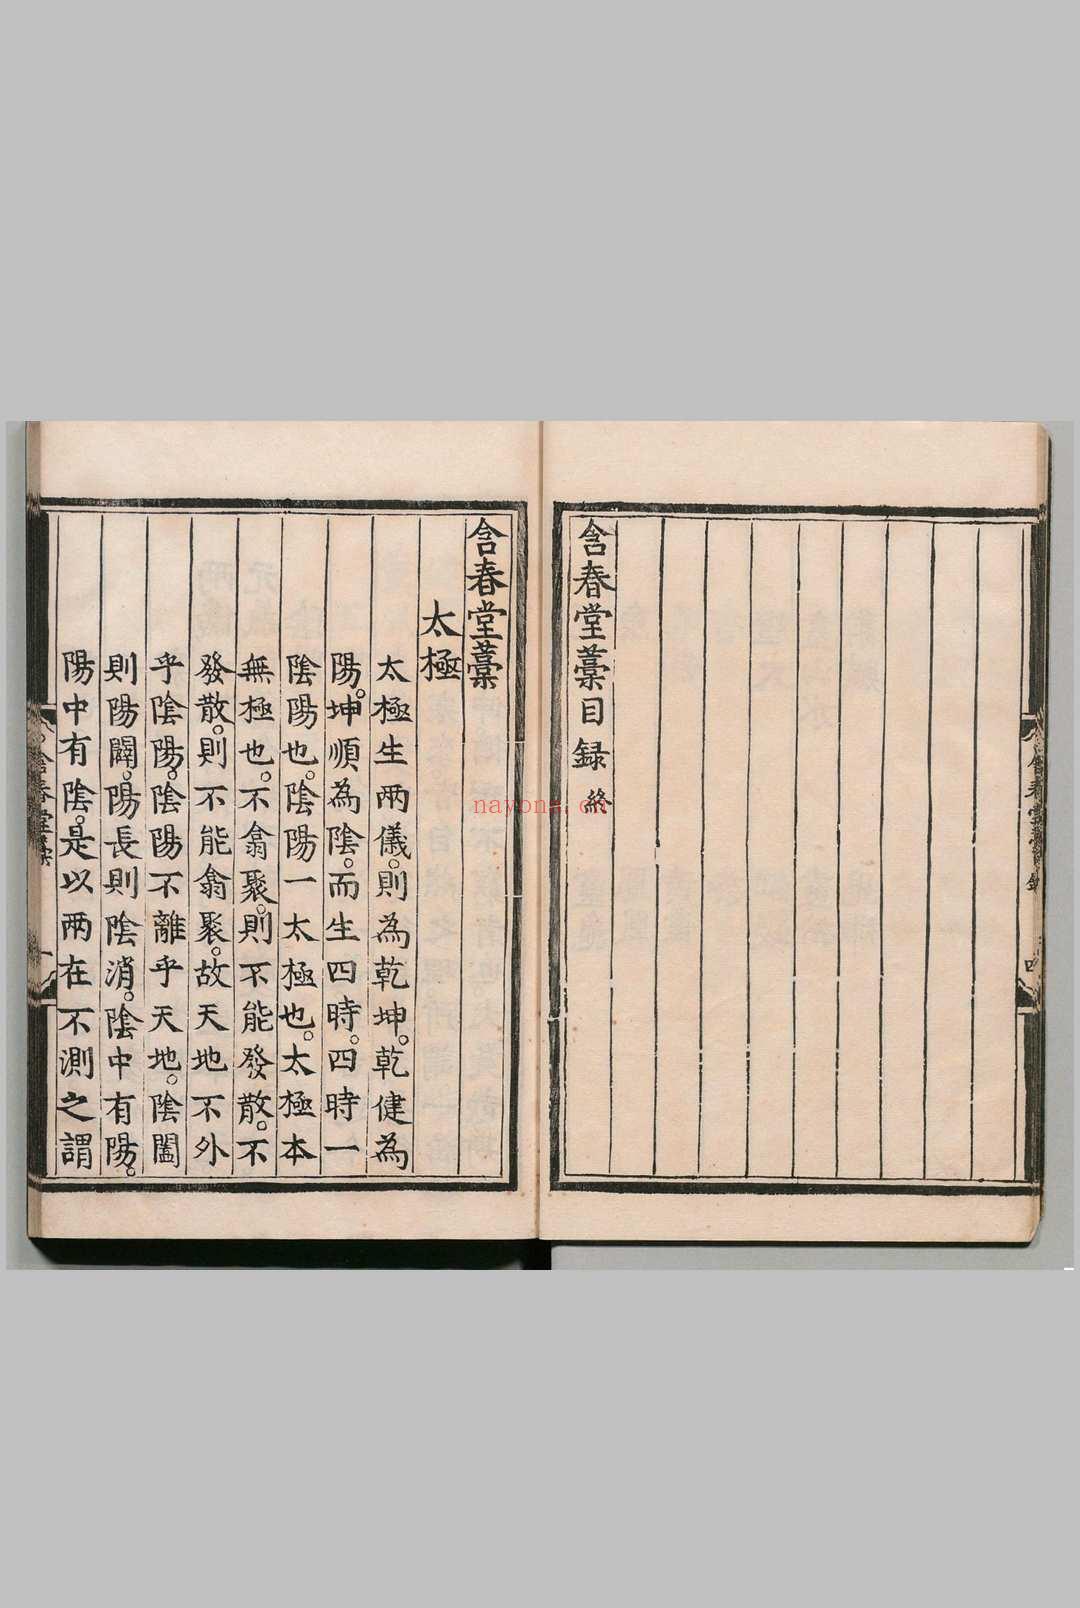 含春堂藁目録終
含春堂藁
太極
太極生兩儀。則為乾坤。乾健為
陽。坤順為陰。而生四時。四時一
陰陽也。陰陽一太極也。太極本
無極也。不翕聚。則不能發散。不
發散。則不能翕聚。故天地不外
乎陰陽。陰陽不離乎天地。陰闔
則陽闢。陽長則陰消。陰中有陽。
陽中有陰。是以兩在不測之謂
含春堂藁
nayona.cn